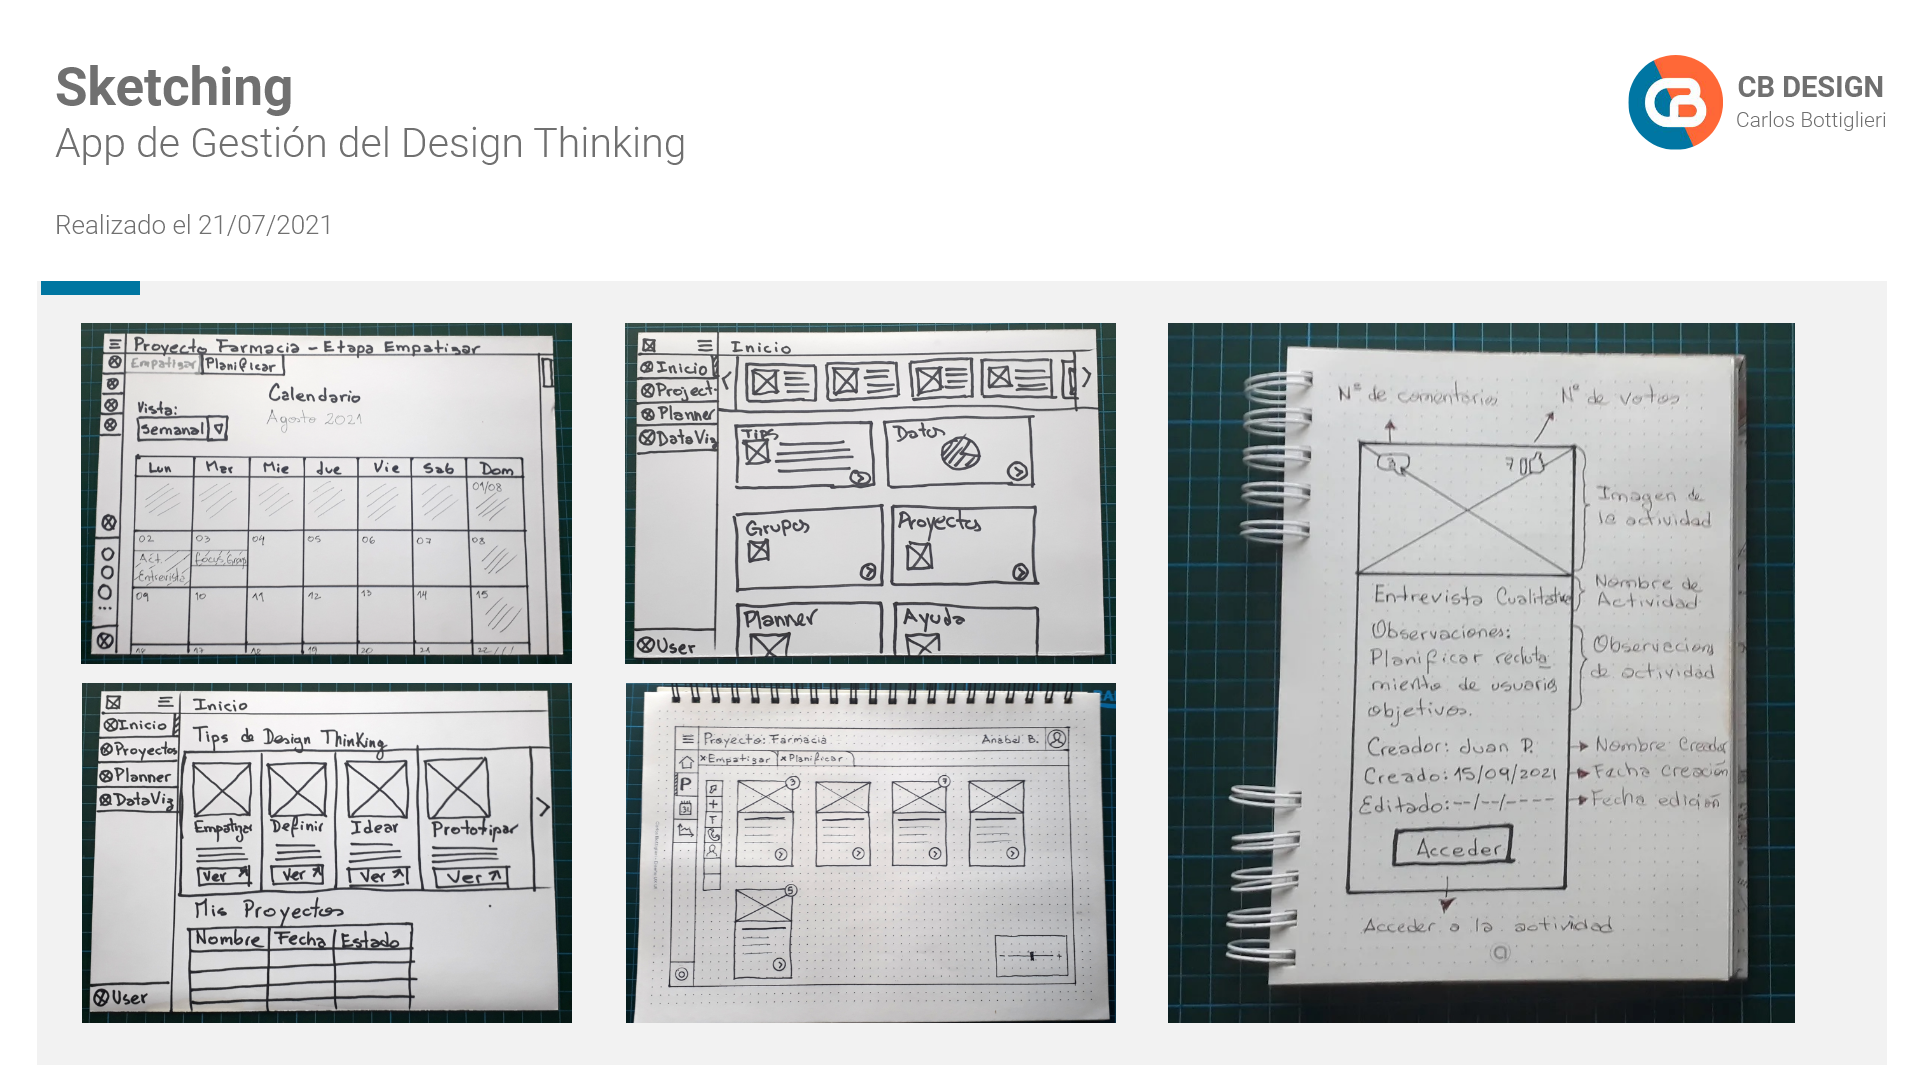 Sketching
App de Gestión del Design Thinking
Realizado el 21/07/2021
CB DESIGN
Carlos Bottiglieri
Proyecto Farmacia - Etapa Empatizar
Empatizar Planificar
Calendario
Agosto 2021
Vista:
Semanal
Lun Mar Mie Jue Vie Sab Dom
01/08
02 03 04 05 06 07 08
Act. Focus Group
Entrevista
09 10 11 12 13 14 15
16 17 18 19 20 21 22
Inicio
Inicio
Project
Planner
DataViz
User
Tips
Datos
Grupos
Proyectos
Planner
Ayuda
Inicio
Inicio
Proyectos
Planner
DataViz
User
Tips de Design Thinking
Empatizar Definir Idear Prototipar
Ver Ver Ver Ver
Mis Proyectos
Nombre Fecha Estado
Proyecto: Farmacia
Anabel B.
× Empatizar × Planificar
P
31
+
T
3
5
- +
Nº de comentarios
Nº de votos
3
70
Imagen de
la actividad
Entrevista Cualitativa
Nombre de
Actividad
Observaciones:
Planificar recluta
miento de usuarios
objetivos.
Observaciones
de actividad
Creador: Juan P.
Nombre Creador
Creado: 15/09/2021
Fecha Creación
Editado: --/--/----
Fecha edición
Acceder
Acceder a la actividad